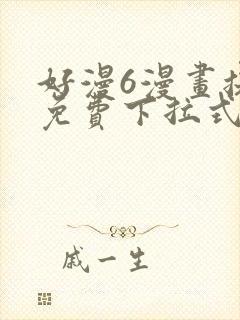 好漫6漫畫
免費下拉式
戚一生